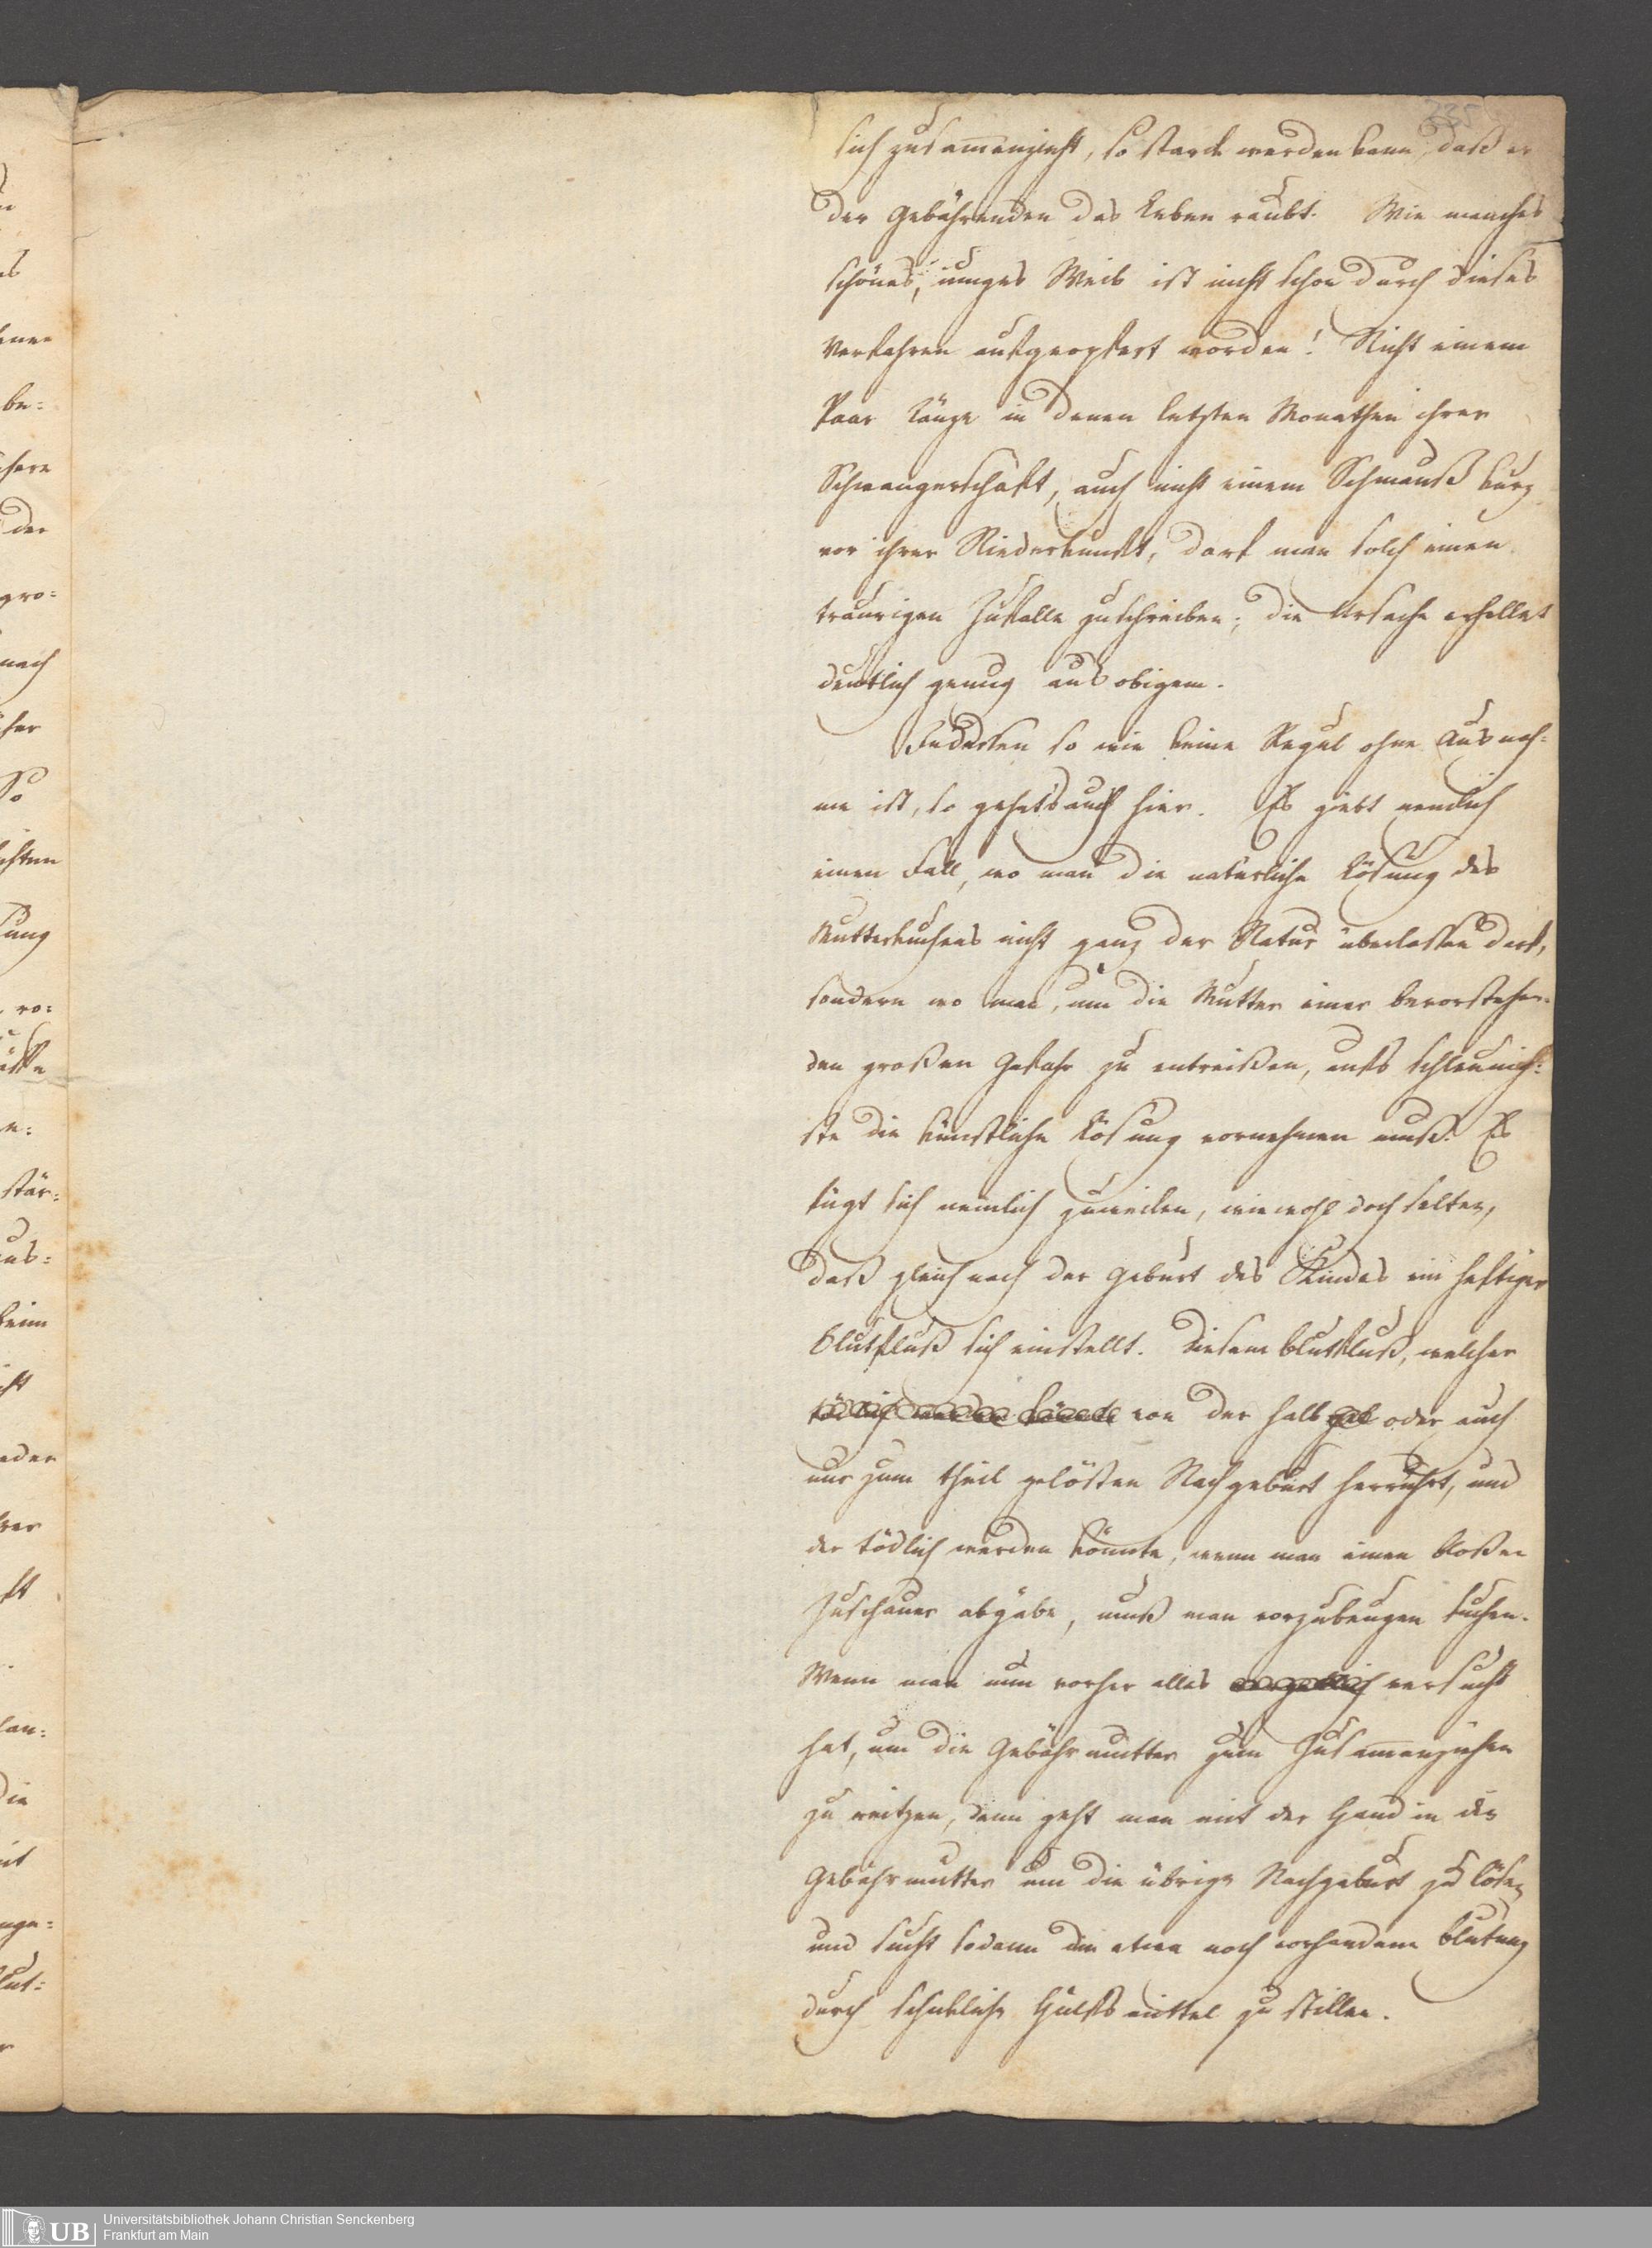 335
sich zusam̅enzieht, so starck werden kann, daß er
der Gebährenden das Leben raubt. Wie manches
schönes, junges Weib ist nicht schon durch dieses
Verfahren aufgeopfert worden! Nicht einem
Paar Tänze in denen letzten Monathen ihrer
Schwangerschaft, auch nicht einem Schmauß kurz
vor ihrer Niederkunft, darf man solch einen
traurigen Zufalle zuschreiben; die Ursache erhellet
deutlich genug aus obigem.
Indessen so wie keine Regul ohne Ausnah=
me ist, so gehets auch hier. Es giebt nemlich
einen Fall, wo man die natürliche Lösung des
Mutterkuchens nicht ganz der Natur überlassen darf,
sondern wo man, um die Mutter einer bevorstehen=
den großen Gefahr zu entreißen, aufs schleunich=
ste die künstliche Lösung vornehmen muß. Es
fügt sich nemlich zuweilen, wiewohl doch selten,
daß gleich nach der Geburt des Kindes ein heftiger
Blutfluß sich einstellt. Diesem Blutfluß, welcher
tödlich werden könnte von der halb gel oder auch
nur zum theil gelößten Nachgeburt herrührt, und
der tödlich werden könnte, wenn man einen bloßen
Zuschauer abgäbe, muß man vorzubeugen suchen.
Wenn man nun vorher alles vergeblich versucht
hat, um die Gebährmutter zum Zusam̅enziehen
zu reitzen, dann geht man mit der Hand in die
Gebährmutter um die übrige Nachgeburt zu lösen
und sucht sodann die etwa noch vorhandene Blutung
durch schickliche Hülfsmittel zu stillen.
be=
der
gro=
nach
So
sung
vo=
stär=
aus=
beim
oder
lan=
die
mit
UB
Universitätsbibliothek Johann Christian Senckenberg
Frankfurt am Main